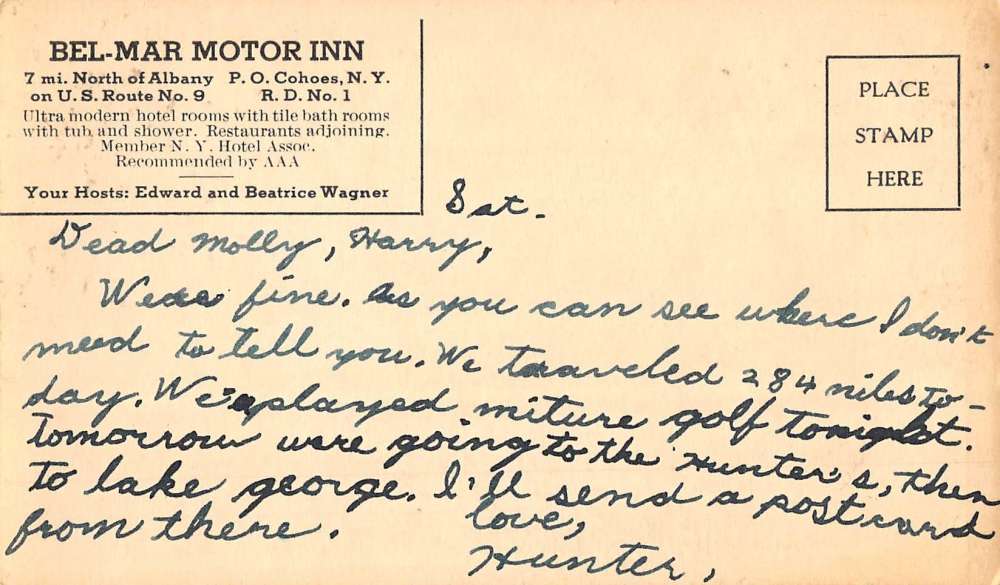 BEL-MAR MOTOR INN
7 mi. North of Albany P. O. Cohoes, N. Y.
on U. S. Route No. 9 R. D. No. 1
Ultra modern hotel rooms with tile bath rooms
with tub and shower. Restaurants adjoining.
Member N. Y. Hotel Assoc.
Recommended by AAA
Your Hosts: Edward and Beatrice Wagner
PLACE
STAMP
HERE
Sat.
Dead Molly, Harry,
fine. As you can see where I don't
need to tell you. We traveled 284 niles to-
day. We played miture golf tonight.
Tomorrow were going to the Hunter's, then
to lake george. I'll send a postcard
from there.
love,
Hunter,